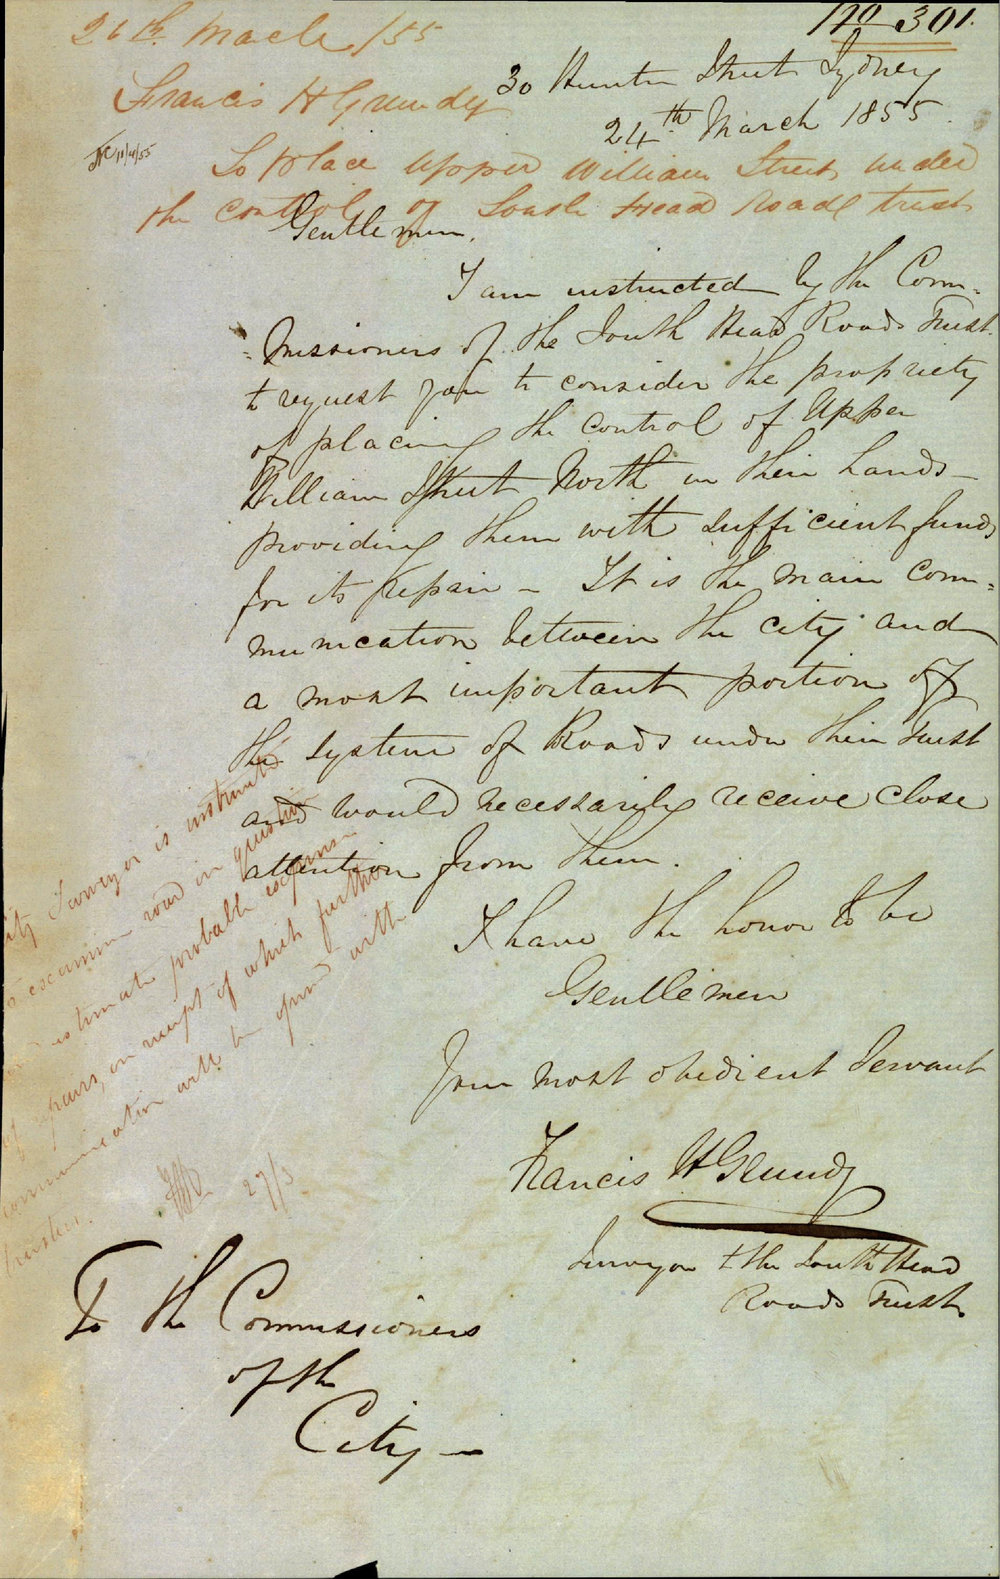 No 301.
26th March /55
Francis H Grundy
30 Hunter Street Sydney
24th March 1855.
11/4/55
To place Upper William Street under
the control of South Head Road trust
Gentlemen,
I am instructed by the Com=
=missioners of the South Head Roads Trust
to request you to consider the propriety
of placing the control of Upper
William Street North in their hands
providing them with sufficient funds
for its repair - It is the main com=
munication between the city and
a most important portion of
the system of Roads under their Trust
and would necessarily receive close
attention from them.
I have the honor to be
Gentlemen
Your most obedient Servant
Francis H Grundy
Surveyor to the South Head
Roads Trust
City Surveyor is instructed
to examine road in question
and estimate probable expense
of repairs, on receipt of which further
communication will be opened with
trustees.
27/3
To the Commissioners
of the
City -